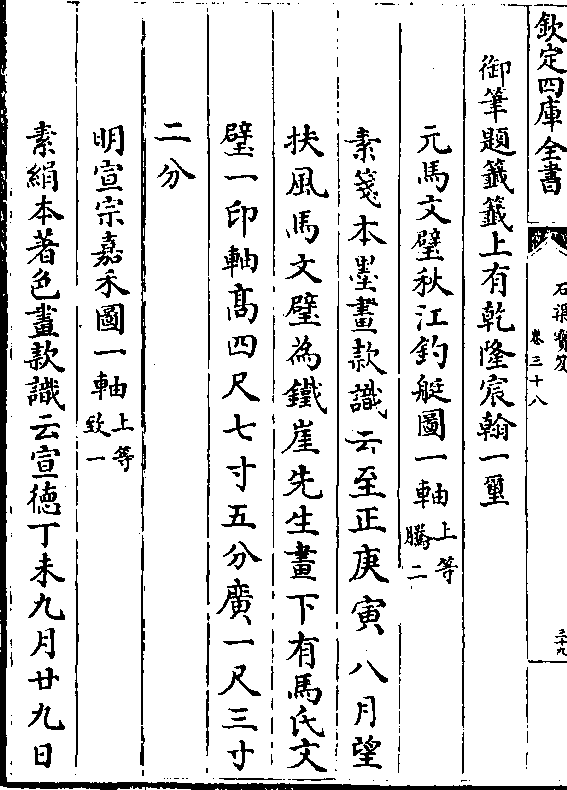 欽定四庫全書
石渠寳笈
卷三十八
三十九
御筆題籖籖上有乾隆宸翰一璽
元馬文璧秋江釣艇圖一軸上等騰二
素箋本墨畫款識云至正庚寅八月望
扶風馬文璧為鐵崖先生畫下有馬氏文
璧一印軸髙四尺七寸五分廣一尺三寸
二分
明宣宗嘉禾圖一軸上等致一
素絹本著色畫款識云宣徳丁未九月廿九日